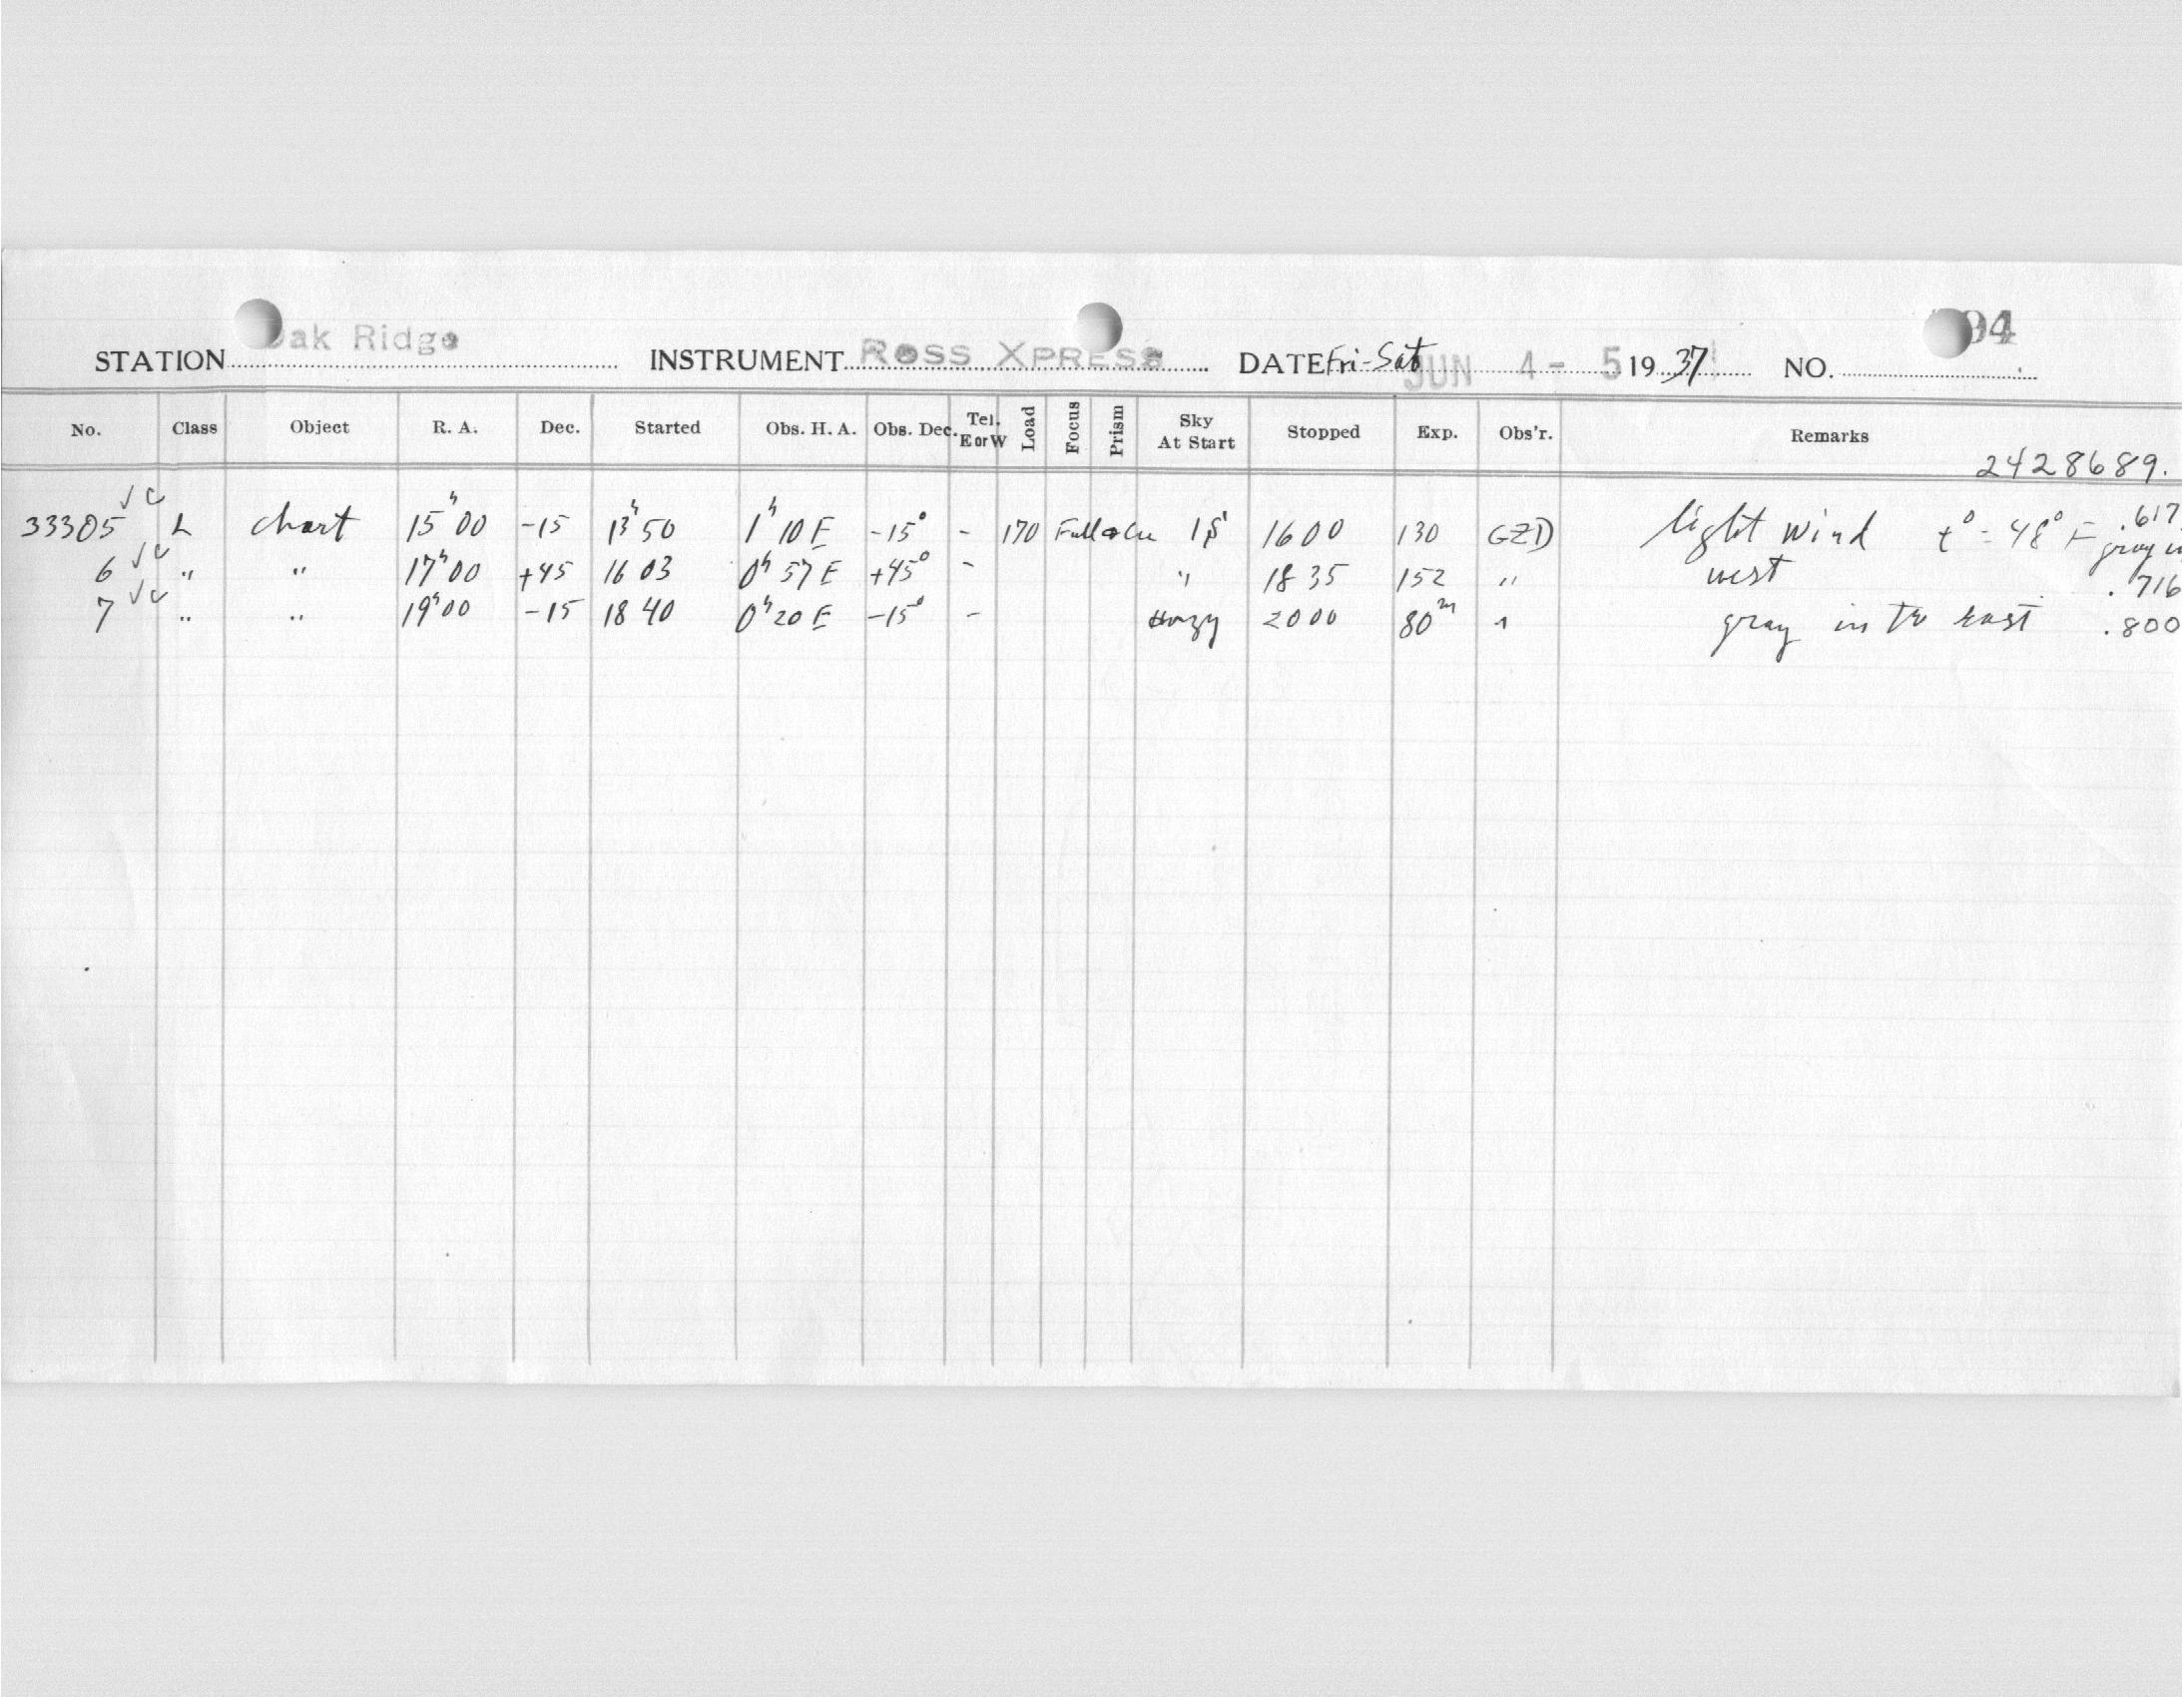 Oak Ridge 94
STATION INSTRUMENT ROSS XPRESS DATE Fri-Sat JUN 4 - 5 1937 NO.
No. Class Object R. A. Dec. Started Obs. H. A. Obs. Dec. Tel. E or W Load Focus Prism Sky At Start Stopped Exp. Obs'r. Remarks
2428689.
33305 √c L chart 15ʰ00 -15 13ʰ50 1ʰ10 E -15° - 170 Full 1600 130 GZD light wind t° = 48° F .617
gray in
6 √c " " 17ʰ00 +45 16 03 0ʰ 57 E +45° - " 18 35 152 " west .716
7 √c " " 19ʰ00 -15 18 40 0ʰ 20 E -15° - Hazy 2000 80ᵐ " gray in the east .800